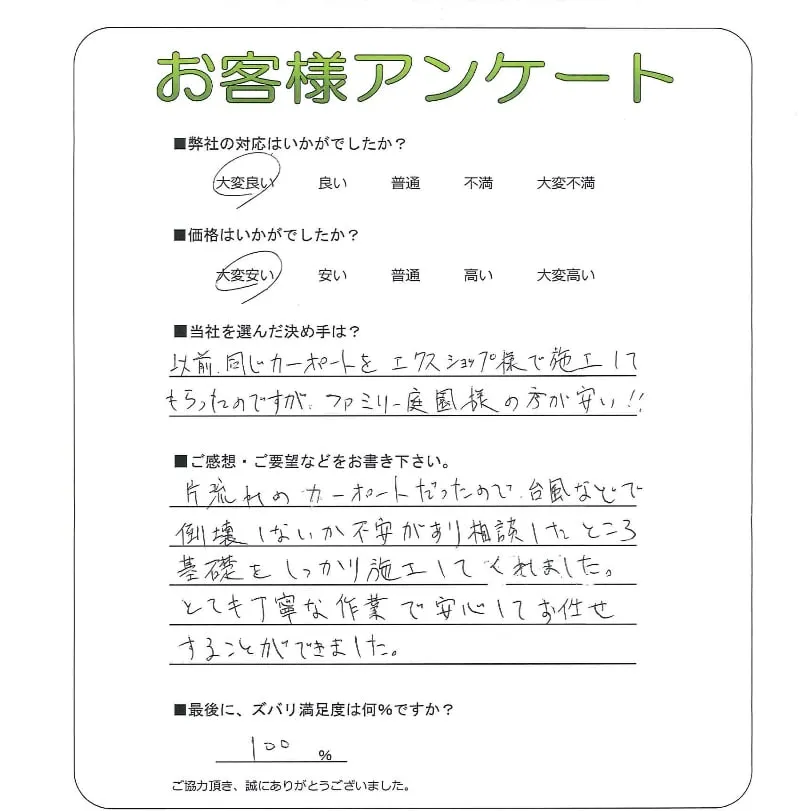 お客様アンケート
■弊社の対応はいかがでしたか？
大変良い 良い 普通 不満 大変不満
■価格はいかがでしたか？
大変安い 安い 普通 高い 大変高い
■当社を選んだ決め手は？
以前、同じカーポートをエクスショップ様で施工して
もらったのですが、ファミリー庭園様の方が安い!!
■ご感想・ご要望などをお書き下さい。
片流れのカーポートだったので、台風などで
倒壊しないか不安があり相談したところ
基礎をしっかり施工してくれました。
とても丁寧な作業で安心してお任せ
することができました。
■最後に、ズバリ満足度は何％ですか？
100 %
ご協力頂き、誠にありがとうございました。